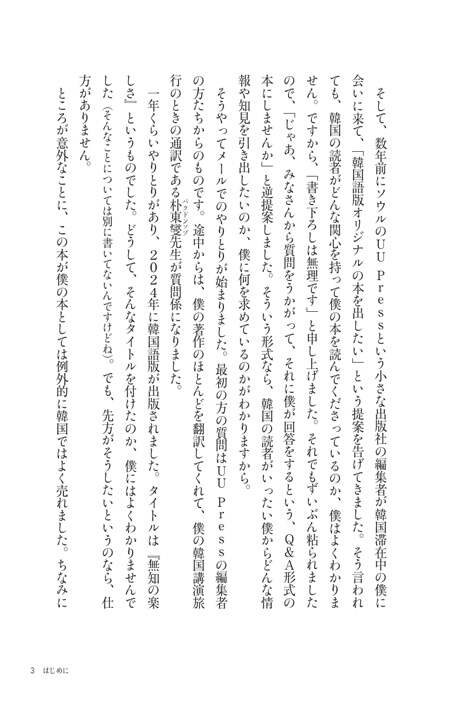 そして、数年前にソウルのUU Pressという小さな出版社の編集者が韓国滞在中の僕に
会いに来て、「韓国語版オリジナルの本を出したい」という提案を告げてきました。そう言われ
ても、韓国の読者がどんな関心を持って僕の本を読んでくださっているのか、僕はよくわかりま
せん。ですから、「書き下ろしは無理です」と申し上げました。それでもずいぶん粘られました
ので、「じゃあ、みなさんから質問をうかがって、それに僕が回答をするという、Q&A形式の
本にしませんか」と逆提案しました。そういう形式なら、韓国の読者がいったい僕からどんな情
報や知見を引き出したいのか、僕に何を求めているのかがわかりますから。
そうやってメールでのやりとりが始まりました。最初の方の質問はUU Pressの編集者
の方たちからのものです。途中からは、僕の著作のほとんどを翻訳してくれて、僕の韓国講演旅
行のときの通訳である朴東燮先生が質問係になりました。
パクドンソプ
一年くらいやりとりがあり、2024年に韓国語版が出版されました。タイトルは『無知の楽
しさ』というものでした。どうして、そんなタイトルを付けたのか、僕にはよくわかりませんで
した（そんなことについては別に書いてないんですけどね）。でも、先方がそうしたいというのなら、仕
方がありません。
ところが意外なことに、この本が僕の本としては例外的に韓国ではよく売れました。ちなみに
3 はじめに